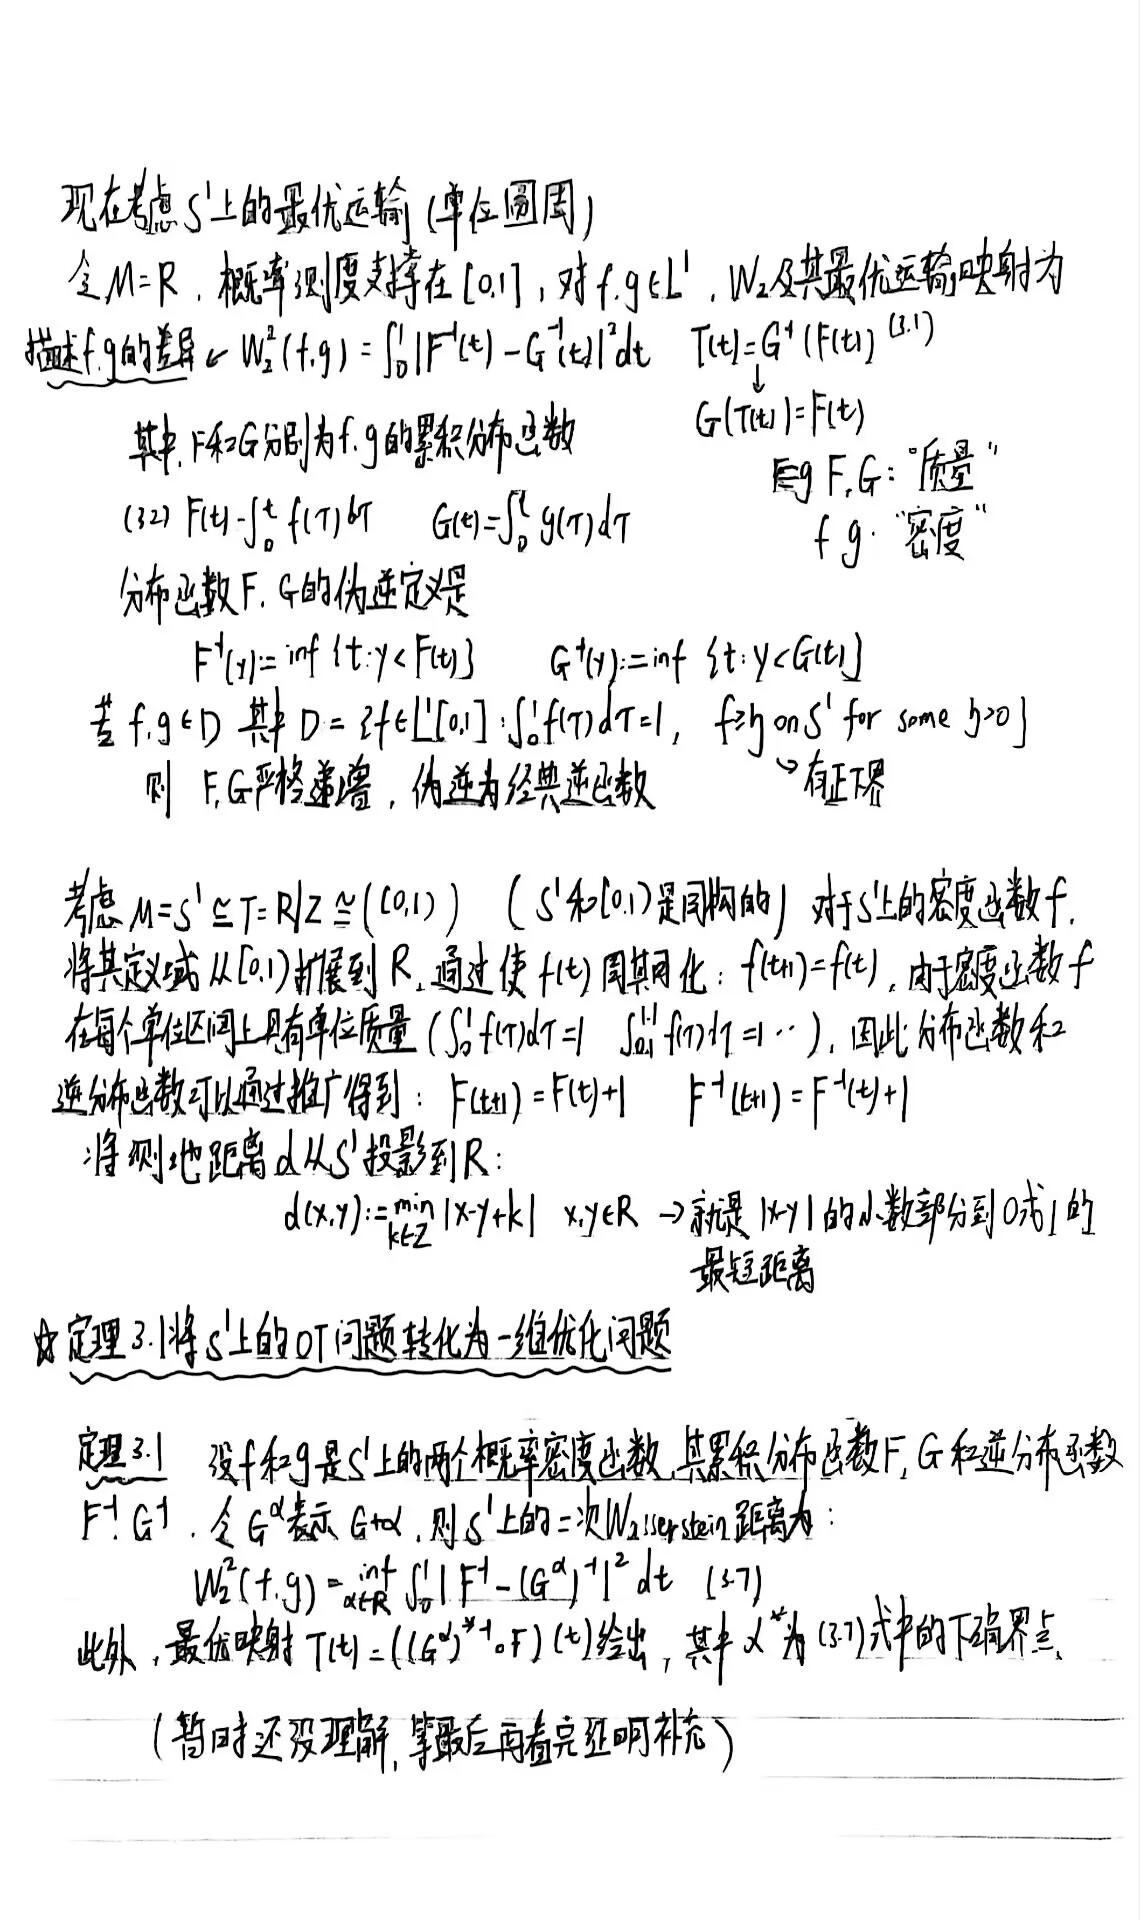 现在考虑S¹上的最优运输(单位圆周)
令M=R,概率测度支撑在[0,1],对f,g∈L¹,W₂及其最优运输映射为
描述f,g的差异↙ W₂²(f,g)=∫₀¹|F⁻¹(t)-G⁻¹(t)|²dt T(t)=G⁻¹(F(t)) (3.1)
↓
其中,F和G分别为f,g的累积分布函数 G(T(t))=F(t)
Eg F,G:"质量"
(3.2) F(t)=∫₀ᵗf(τ)dτ G(t)=∫₀ᵗg(τ)dτ
f g:"密度"
分布函数F,G的伪逆定义是
F⁻¹(y):=inf{t:y<F(t)} G⁻¹(y):=inf{t:y<G(t)}
若f,g∈D 其中D={f∈L¹[0,1]:∫₀¹f(τ)dτ=1, f≥η on S¹ for some η>0}
则 F,G严格递增,伪逆为经典逆函数 ↳有正下界
考虑M=S¹≅T=R/Z≅([0,1)) (S¹和[0,1)是同构的) 对于S¹上的密度函数f,
将其定义域从[0,1)扩展到R,通过使f(t)周期化:f(t+1)=f(t),由于密度函数f
在每个单位区间上具有单位质量(∫₀¹f(τ)dτ=1 ∫₀.₁¹·¹f(τ)dτ=1…),因此分布函数和
逆分布函数可以通过推广得到:F(t+1)=F(t)+1 F⁻¹(t+1)=F⁻¹(t)+1
将测地距离d从S¹投影到R:
d(x,y):=min|x-y+k| x,y∈R →就是|x-y|的小数部分到0或1的
k∈Z
最短距离
☆定理3.1将S¹上的OT问题转化为一维优化问题
定理3.1 设f和g是S¹上的两个概率密度函数,其累积分布函数F,G和逆分布函数
F⁻¹,G⁻¹,令G^α表示G+α,则S¹上的二次Wasserstein距离为:
W₂²(f,g)=inf_{α∈R}∫₀¹|F⁻¹-(G^α)⁻¹|²dt (3.7)
此外,最优映射T(t)=((G^α)^{*-1}∘F)(t)给出,其中α*为(3.7)式中的下确界点,
(暂时还没理解,等最后再看完证明补充)